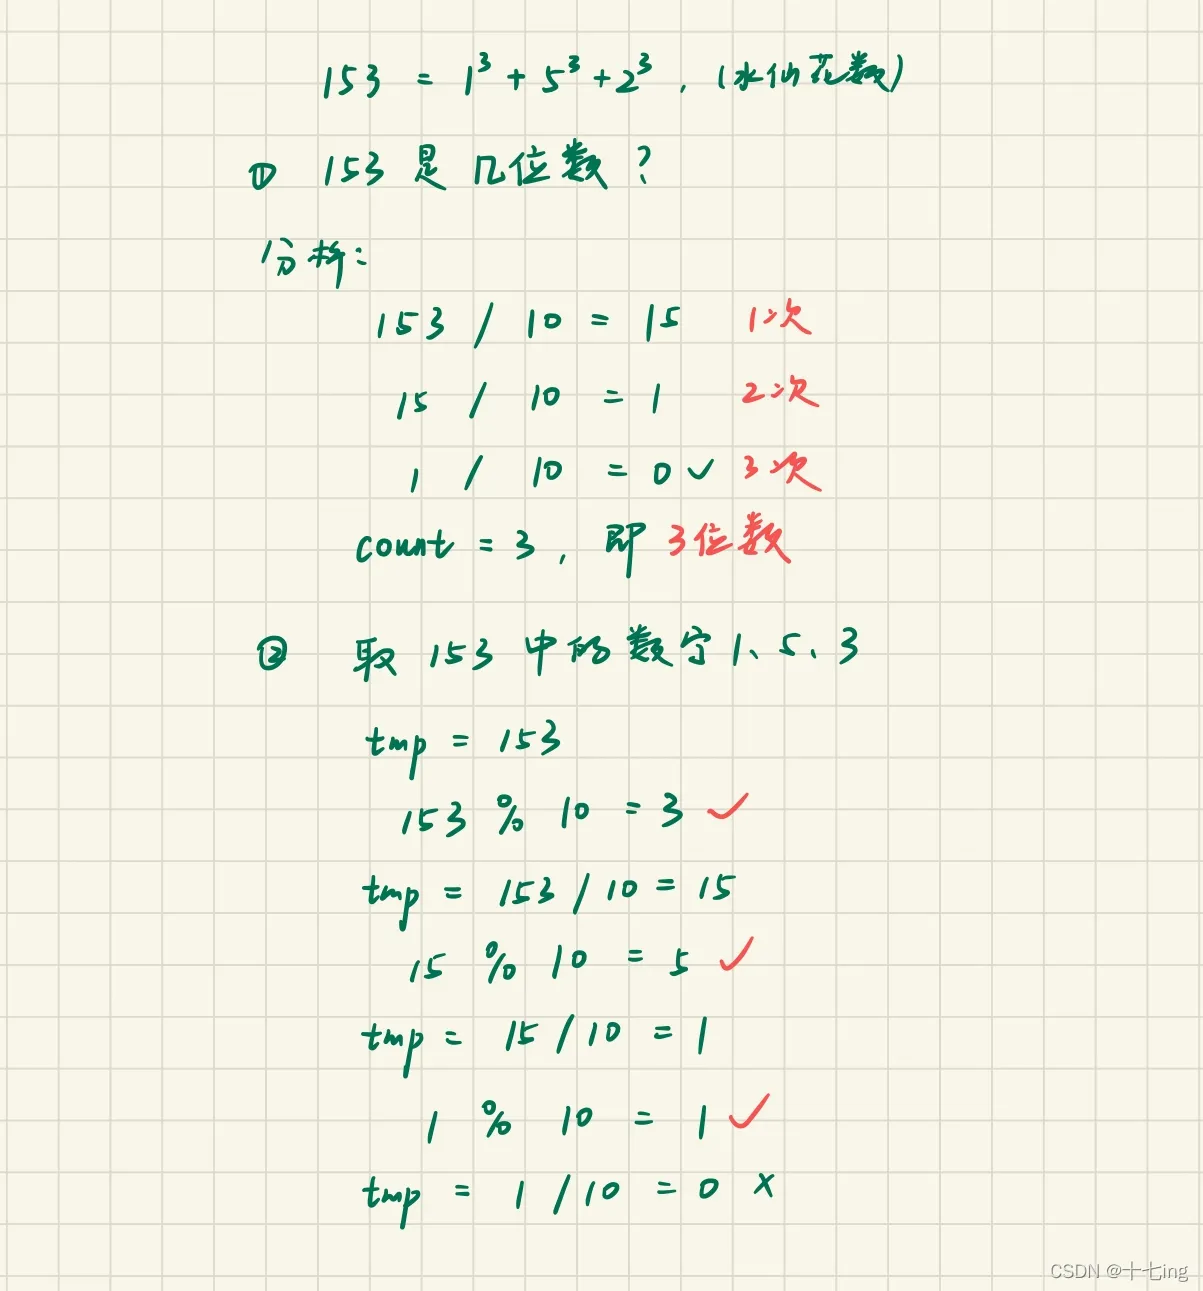 153 = 1³ + 5³ + 2³, (水仙花数)
① 153 是 几位数?
分析:
153 / 10 = 15 1次
15 / 10 = 1 2次
1 / 10 = 0 ✓ 3次
count = 3, 即 3位数
② 取 153 中的数字 1、5、3
tmp = 153
153 % 10 = 3 ✓
tmp = 153 / 10 = 15
15 % 10 = 5 ✓
tmp = 15 / 10 = 1
1 % 10 = 1 ✓
tmp = 1 / 10 = 0 ×
CSDN @十七ing